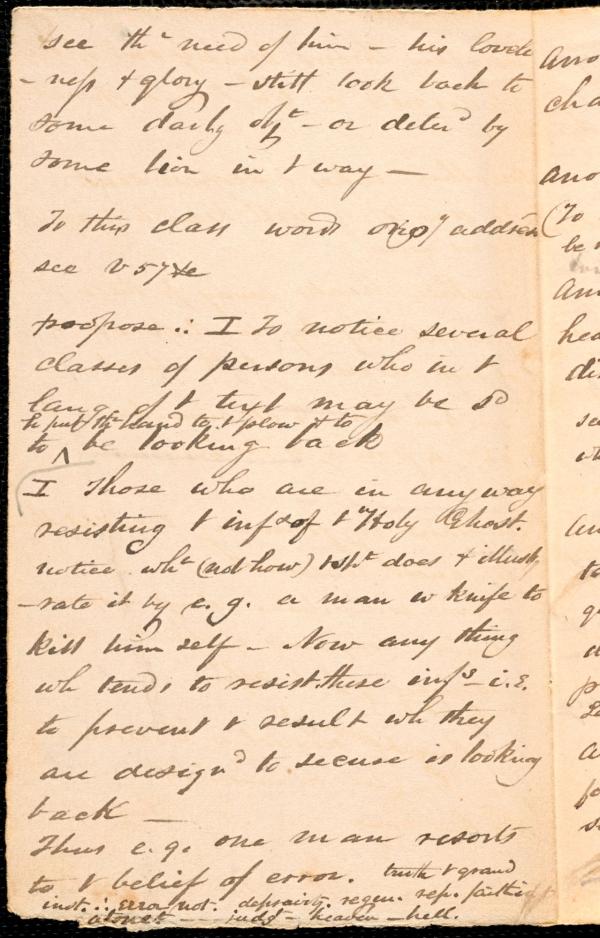 see th^e need of him – his loveli
-ness & glory – still look back to
some darling obj^t – or deter^d by
some lion in t way –
To this class words orig^y address
see v 57 &c
propose ∴ I To notice several
classes of persons who in t
lang of t text may be s^d
to put th^r hand to t plow & to
to ^ be looking back
I Those who are in any way
resisting t inf^s of t Holy Ghost.
notice wh^t (not how) t Sp^t does & illust
-rate it by e.g. a man w knife to
kill himself – Now any thing
wh tends to resist these inf^s – i.e.
to prevent t result wh they
are design^d to secure is looking
back –
Thus e.g. one man resorts
to t belief of error. truth t grand
inst. ∴ error not. depravity. regen. rep. faith
atone^t – judg^t – heaven – hell.
arro
cha
ano
(To
be
an
hea
di